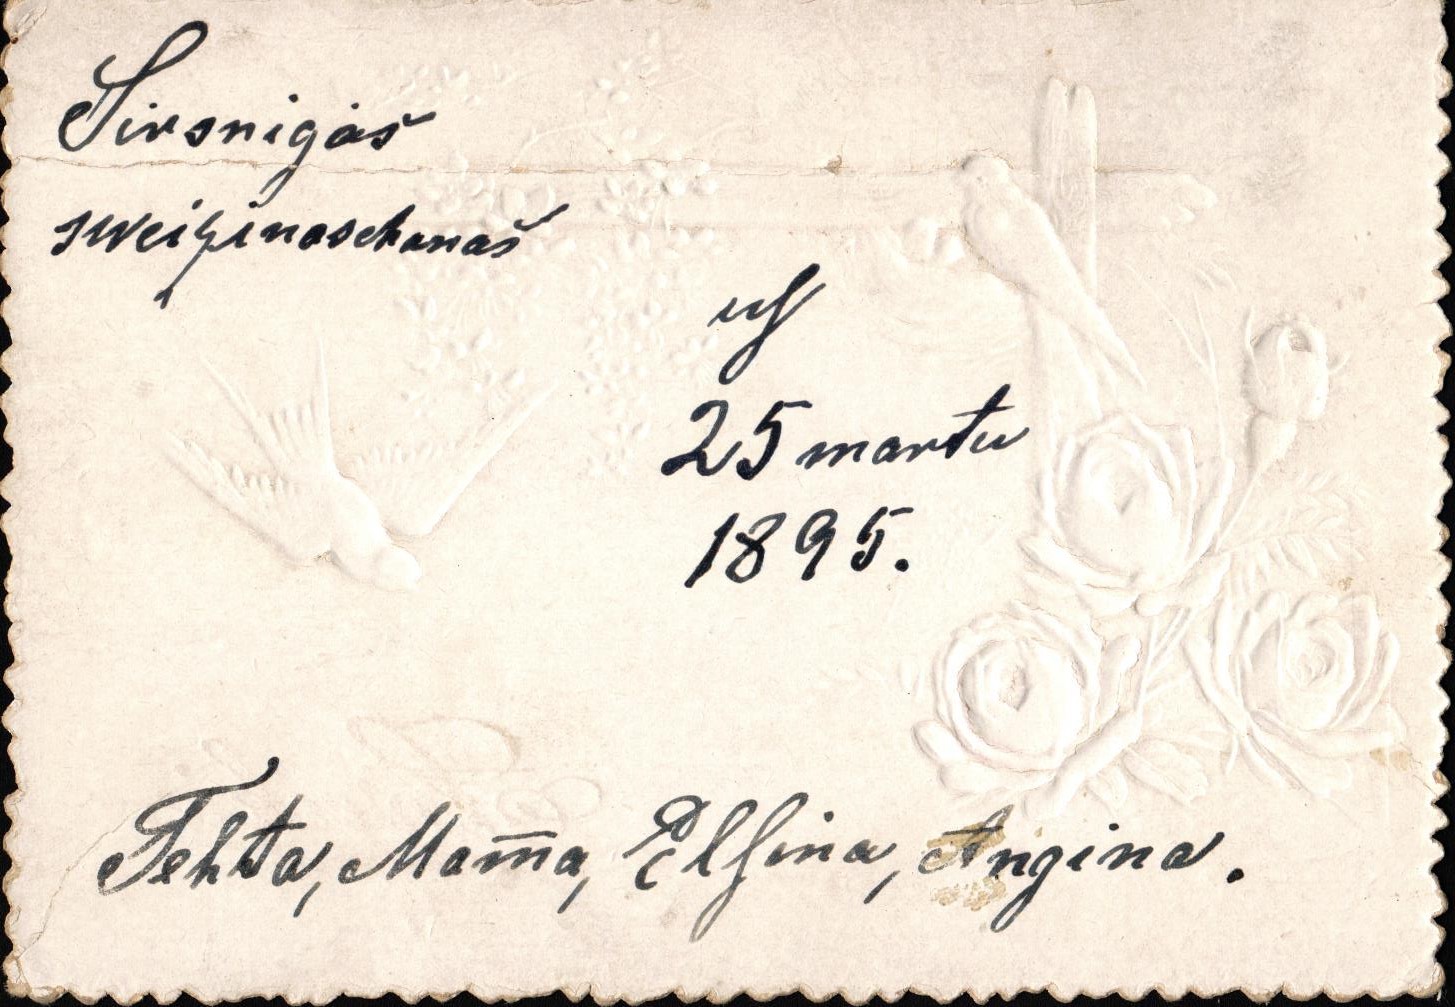 Sirsnigas̆
sweizinaschanas̆
uf
25 martu
1895.
Tehta, Mam̄a, Elfina, Angina.